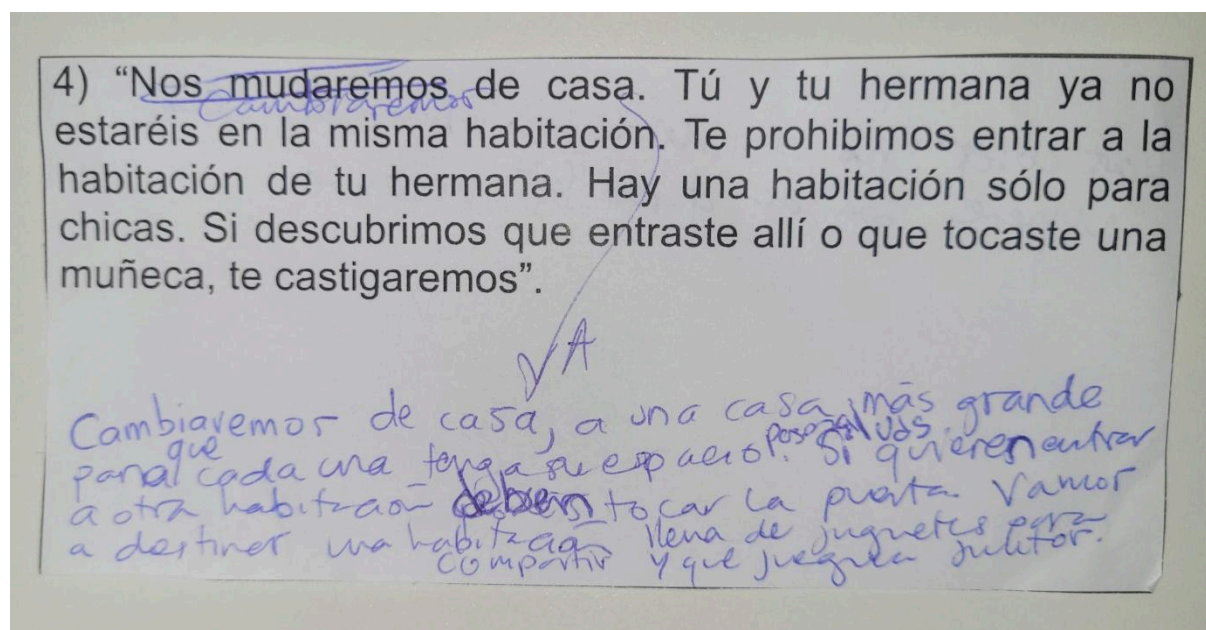 4) “Nos mudaremos de casa. Tú y tu hermana ya no
Cambiaremos
estaréis en la misma habitación. Te prohibimos entrar a la
habitación de tu hermana. Hay una habitación sólo para
chicas. Si descubrimos que entraste allí o que tocaste una
muñeca, te castigaremos”.
A
Cambiaremos de casa, a una casa más grande
para que cada una tenga su espacio. Si Uds. quieren entrar
a otra habitación deben tocar la puerta. Vamos
a destinar una habitación llena de juguetes para
compartir y que jueguen juntos.